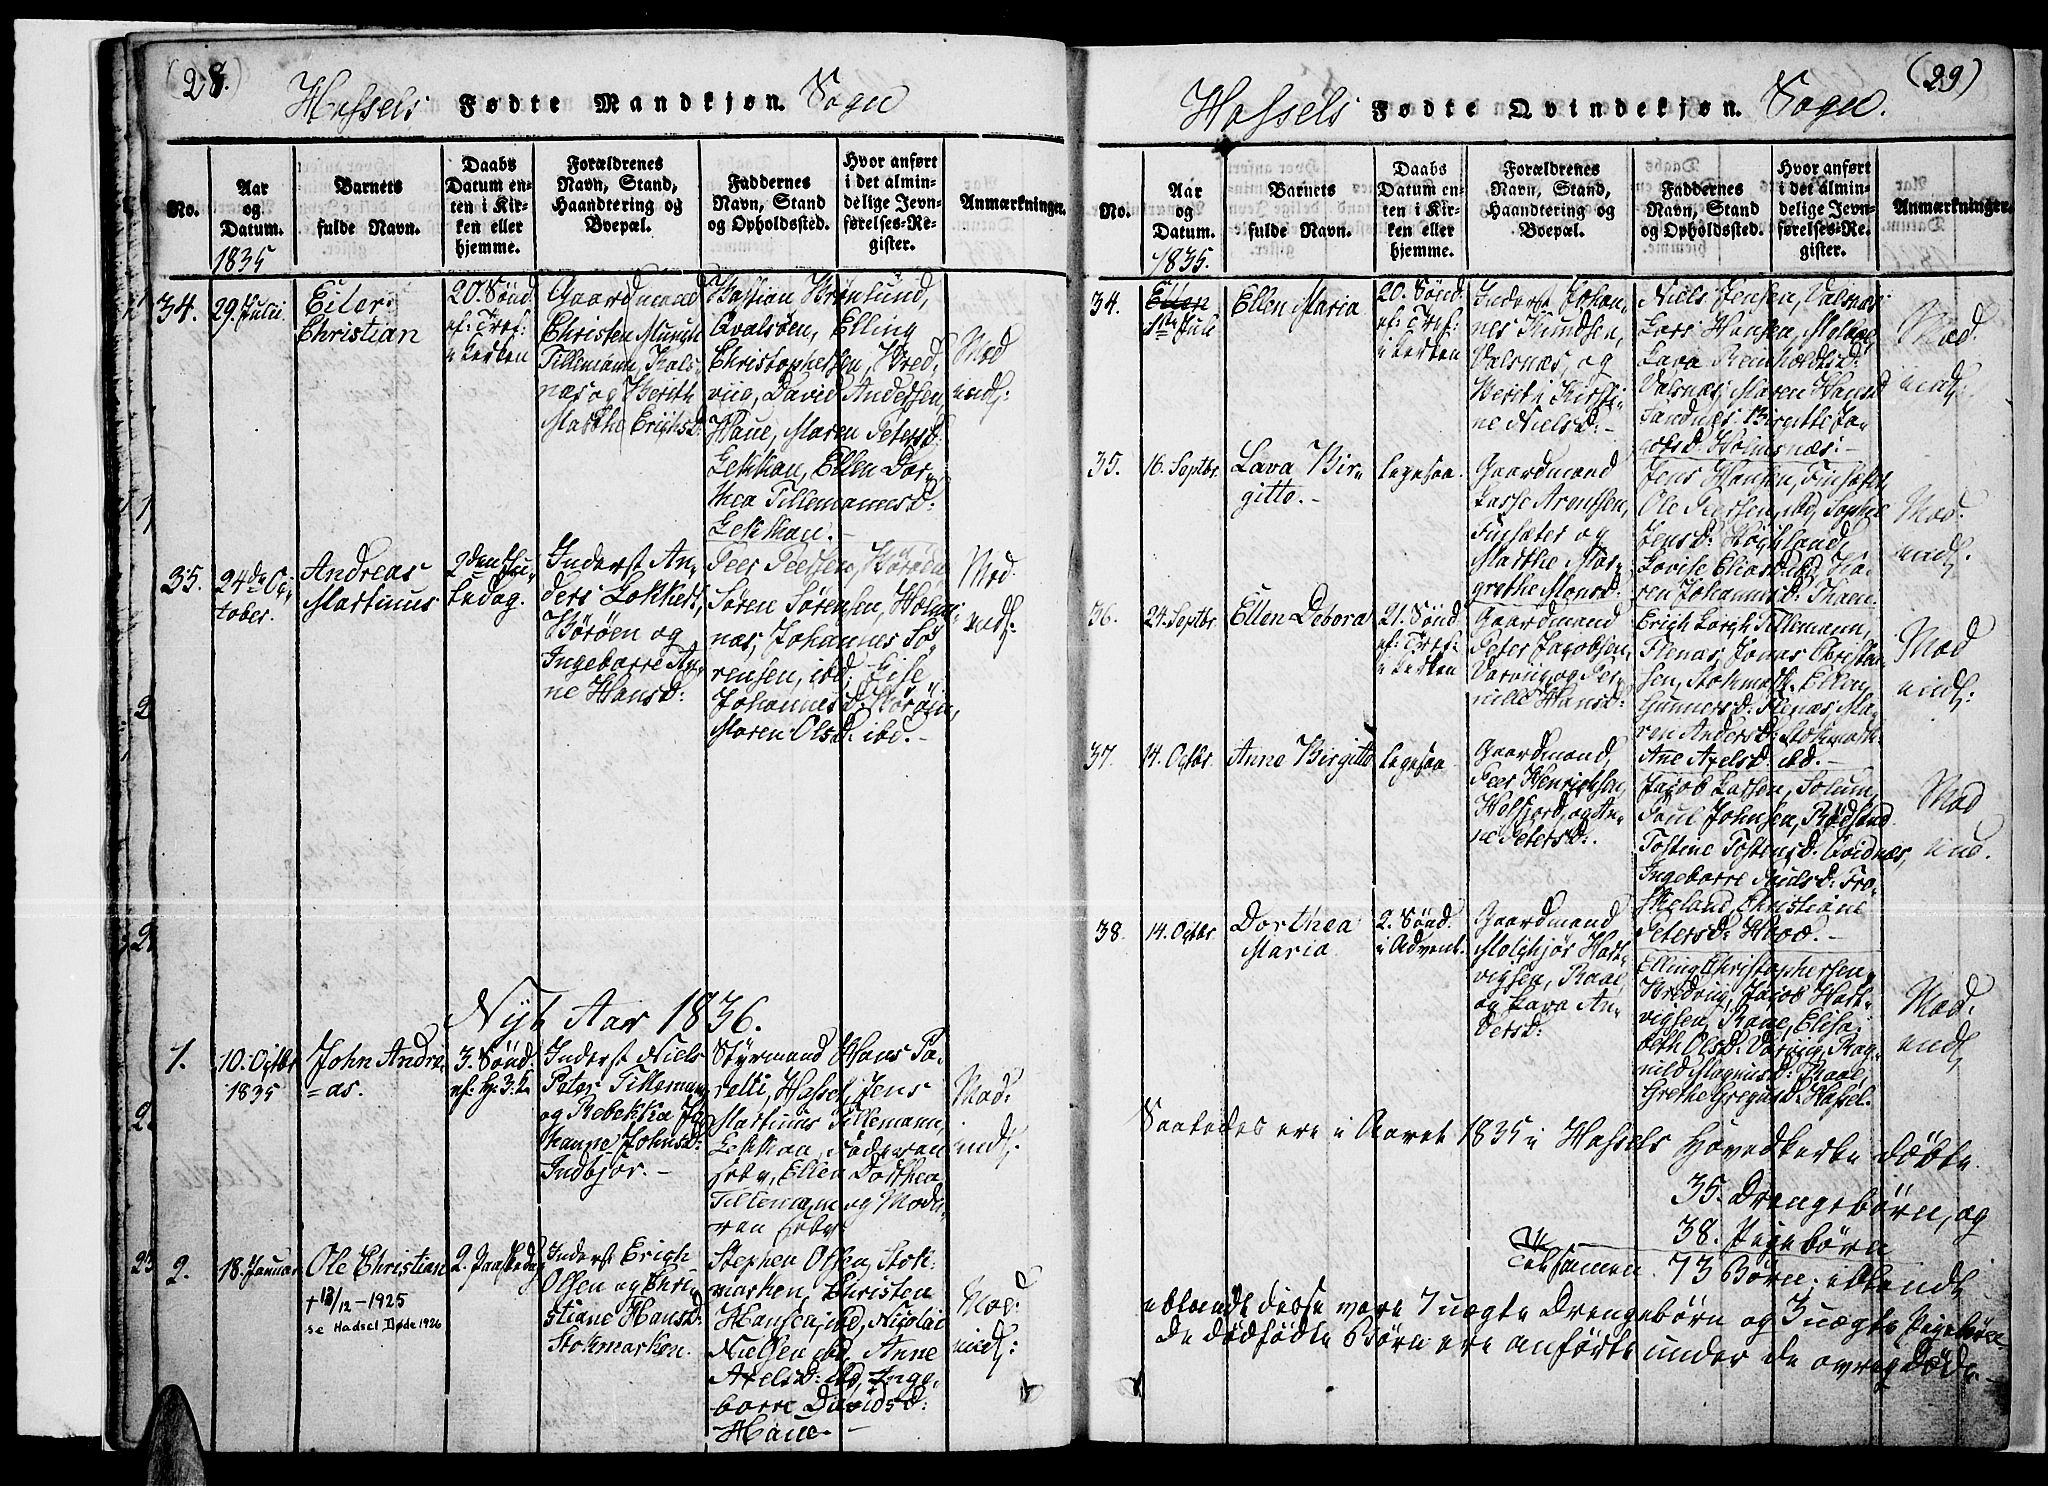 (28.)
Hassels Fødte Mandkjøn. Sogn
No.
Aar og Datum.
Barnets fulde Navn.
Daabs Datum enten i Kirken eller hjemme.
Forældrenes Navn, Stand, Haandtering og Boepæl.
Faddernes Navn, Stand og Opholdssted.
Hvor anført i det almindelige Jevnførelses-Register.
Anmærkninger.
1835
34.
29. Julii
Eiler
Christian
20. Sønd.
ef: Tref:
i Kirken
Gaardmand
Christen Munch
Tillemann, Kals-
næs og Berith
Marthe Erichsd:
Bastian Brønlund,
Qvalsøen, Elling
Christophersen, Bred-
viig, David Andersen,
Haue, Maren Petersd:
Lekkan, Ellen Dor-
thea Tillemannsd:
Lekkan.-
Mod
indl:
35.
24de Oc-
tober.
Andreas
Martinus
2den Ju-
ledag.
Inderst An-
ders Lokkert,
Børøen og
Ingeborre An-
ne Hansd:
Peer Peersen, Børøen
Søren Sørensen, Holm-
næs, Johannes Sö-
rensen, ibd: Else
Johannesd: Börøen,
Maren Olsd: ibd.-
Mod.
indl:
Nyt Aar 1836.
1.
10. Octbr
1835
John Andre-
as.
3. Sønd.
ef: H: 3: K:
Inderst Niels
Peter Tillemann
og Rebekka Jo-
hanne Johnsd:
Indbjor.-
Styrmand Hans Pa-
relli, Hassel, Jens
Martinus Tillemann,
Lekkan,
Ellen Dorthea
Tilleman og
Mod:
indl:
2.
18. Januar
Ole Christian
† 13/12 - 1925
se Hadsel Døde 1926
2. Paaskedag
Inderst Erich
Olsen og Chri-
stiane Hansd:
Stokmarken.
Stephen Olsen, Stok-
marken, Christen
Hansen, ibd, Nicolai
Nielsen ibd Anne
Axelsd: ibd, Inge-
borre Davidsd:
Haue.-
Mod:
indl:
(29)
Hassels Fødte Qvindekjøn. Sogn.
No.
Aar og Datum.
Barnets fulde Navn.
Daabs Datum enten i Kirken eller hjemme.
Forældrenes Navn, Stand, Haandtering og Boepæl.
Faddernes Navn, Stand og Opholdssted.
Hvor anført i det almindelige Jevnførelses-Register.
Anmærkninger.
1835.
34.
Ellen Maria
20. Sønd.
ef: Tref:
i Kirken
Inderst Johan-
nes Knudsen,
Valsnæs, og
Berit Kirsti-
ne Nielsd:-
Niels Jensen, Valsnæs
Lars Hansen,
Lava Reinholdtsd:
Valsnæs, Maren Hansd
Sandnæs Birgitte Ja-
cobsd: Holmsnæs:-
Mod:
indl:
35.
16. Septbr.
Lava Bir-
gitte.-
ligesaa.
Gaardmand
Lasse Arentsen,
Finsæter og
Marthe Mar-
grethe Monsd:
Jens Hansen, Finsæter,
Ole Peersen, ibd, Sophie
Jensd: Høkland,
Lovise Eliasd: ibd, Ka-
ren Johannisd: Thaen.
Mod:
indl:
36.
24. Septbr.
Ellen Debora
21. Sønd.
ef: Tref:
i Kirken
Gaardmand
Peter Jacobsen,
Vorvig og Per-
nille Hansd:
Erich Lorch Tillemann,
Flenæs, Jonas Christian-
sen, Stokmark: Ellen
Gunnersd: Flenæs, Ma-
ren Andersd: Stokmark
Ane Axelsd: ibd.-
Mod
indl:
37.
14. Octbr.
Anne Birgitte
ligesaa
Gaardmand,
Peer Henrichsen,
Helfjord, og An-
ne Petersd:.
Jacob Larsen, Solum,
Poul Johnsen, Rødsand
Tostine Tostensd: Qvidnæs,
Ingeborre Nielsd: Fro-
skeland, Christiane
Petersd:
Mod
ind.
38.
14. Octbr.
Dorthea
Maria
2. Sønd.
i Advent.
Gaardmand
Melchjør Hart-
vigsen, Raae
og Lava An-
dersd:
Elling Christophersen,
Bredvig, Jacob Hart-
vigsen, Raae, Elisa-
beth Olsd: Vorviig, Rag-
nild Magnusd: Raae,
Grethe Gregusd: Hassel.
Mod:
indl
Saaledes ere i Aaret 1835 i Hassels Hovedkirke døbte
35. Drengebørn, og
38. Pigebørn
Tilsammen. 73 Børn; iblandt
iblandt disse vare 7 uægte Drengebørn og 3 uægte Pigebørn
De dødfødte Børn ere anførte under de øvrige Døde.-